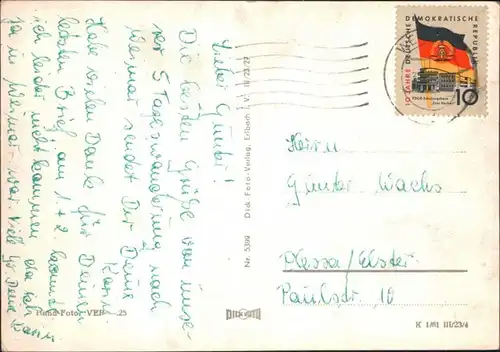 Lieber Günter!
Die besten Grüße von unse-
rer 5 Tageswanderung nach
Weimar sendet Dir Deine
Karin
Habe vielen Dank für Deinen
letzten Brief am 1. + 2. konnte
ich leider nicht kommen da ich
ja in Weimar war. Viele Gr. Deine Karin
Hand-Foto: VEB 25
Nr. 5309 Dick Foto-Verlag, Erlbach i. V. III/23/27
DICK FOTO
10 JAHRE DEUTSCHE DEMOKRATISCHE REPUBLIK
10
Herrn
Günter Wachs
Plessa/Elster
Paulstr. 10
III/23/4